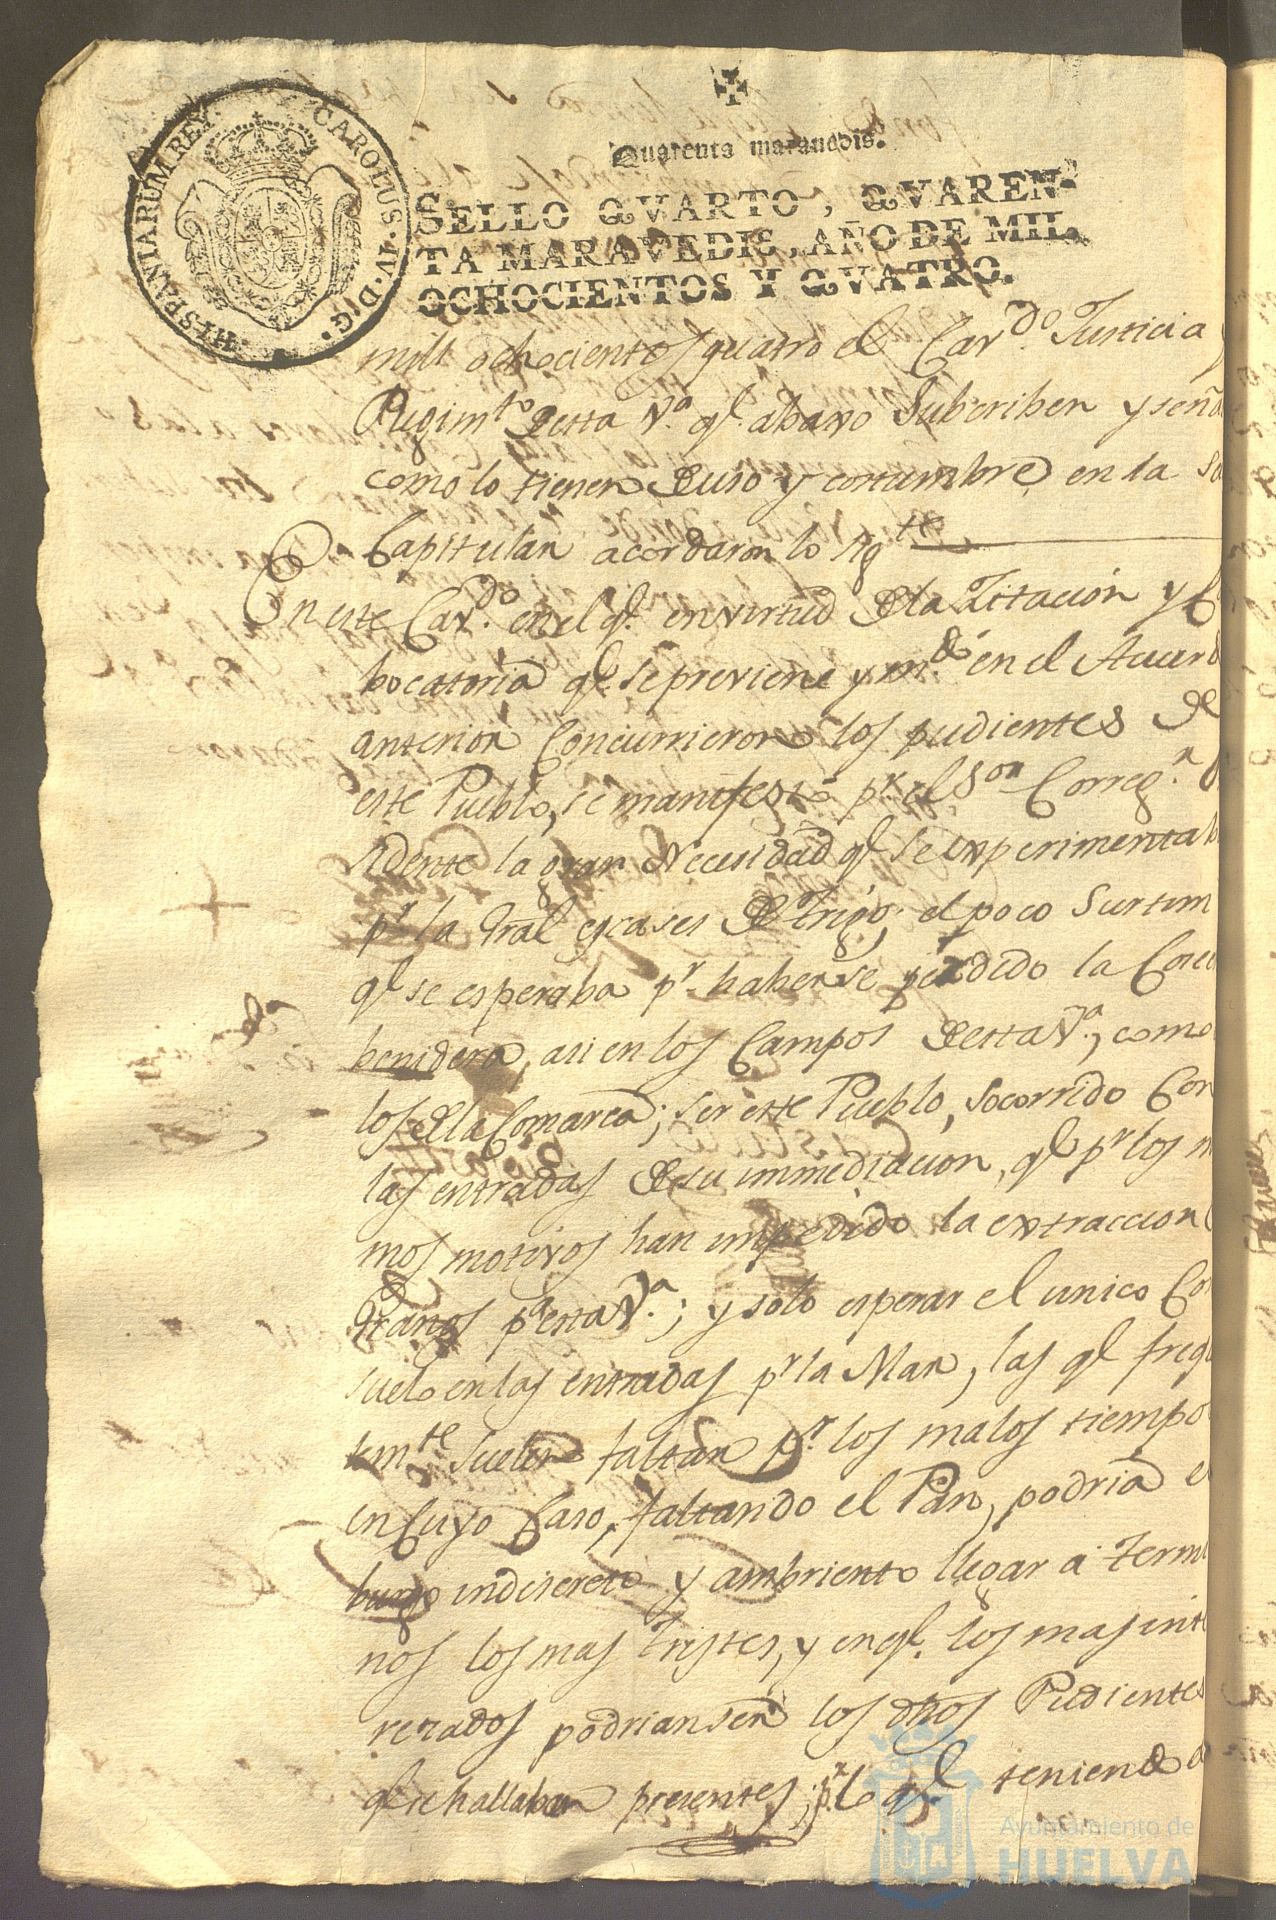 HISPANIARUM REY. CAROLUS·IV·D·G·
Quarenta maravedis.
SELLO QVARTO, QVAREN-
TA MARAVEDIS, AÑO DE MIL
OCHOCIENTOS Y QVATRO.
mill ochocientos quatro el Cavdo. Justicia y
Regimto desta Va. qe. abaxo Subcriben y seña
como lo tienen de uso y costumbre en la Sa
Capitular acordaron lo sigte
En este Cavdo. en el qe. en virtud de la Zitación y Co
bocatoria qe. se previene y mdó en el Acuerdo
anterior Concurrieron los pudientes de
este Pueblo, se manifestó pr. el Sor. Corregr.
sidente la gran Necesidad qe se experimentab
pr. la Gral escases de Trigo; el poco Surtim
qe se esperaba pr. haberse perdido la Cosec
benidera, asi en los Campos desta Va., como
los de la Comarca; ser este Pueblo, Socorrido Con
las entradas de su immediacion, qe pr los m
mos motivos han impedido la extraccion
Granos pa esta Va.; y solo esperar el unico Con
suelo en las entradas pr la Mar, las qe freq
temte suelen faltar pr. los malos tiempo
en Cuyo Caso, faltando el Pan, podria el
bulgo indiscreto y ambriento llegar a Termi
nos los mas Tristes, y en qe. los mas inte
rezados podrian ser los dhos Pudientes
qe se hallaban presentes; pr. lo qe teniendo
Ayuntamiento de
HUELVA